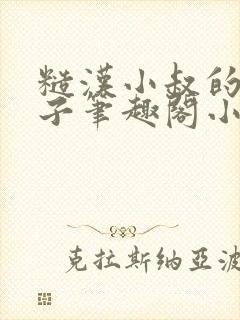 糙漢小叔的
子筆趣閣小
克拉斯納亞波